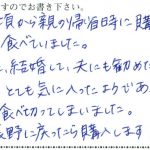 すのでお書き下さい。
頃から親の帰省時に購
食べていました。
、結婚して、夫にも勧めた
とても気に入ったようであ
食べ切ってしまいました。
長野に戻ったら購入します